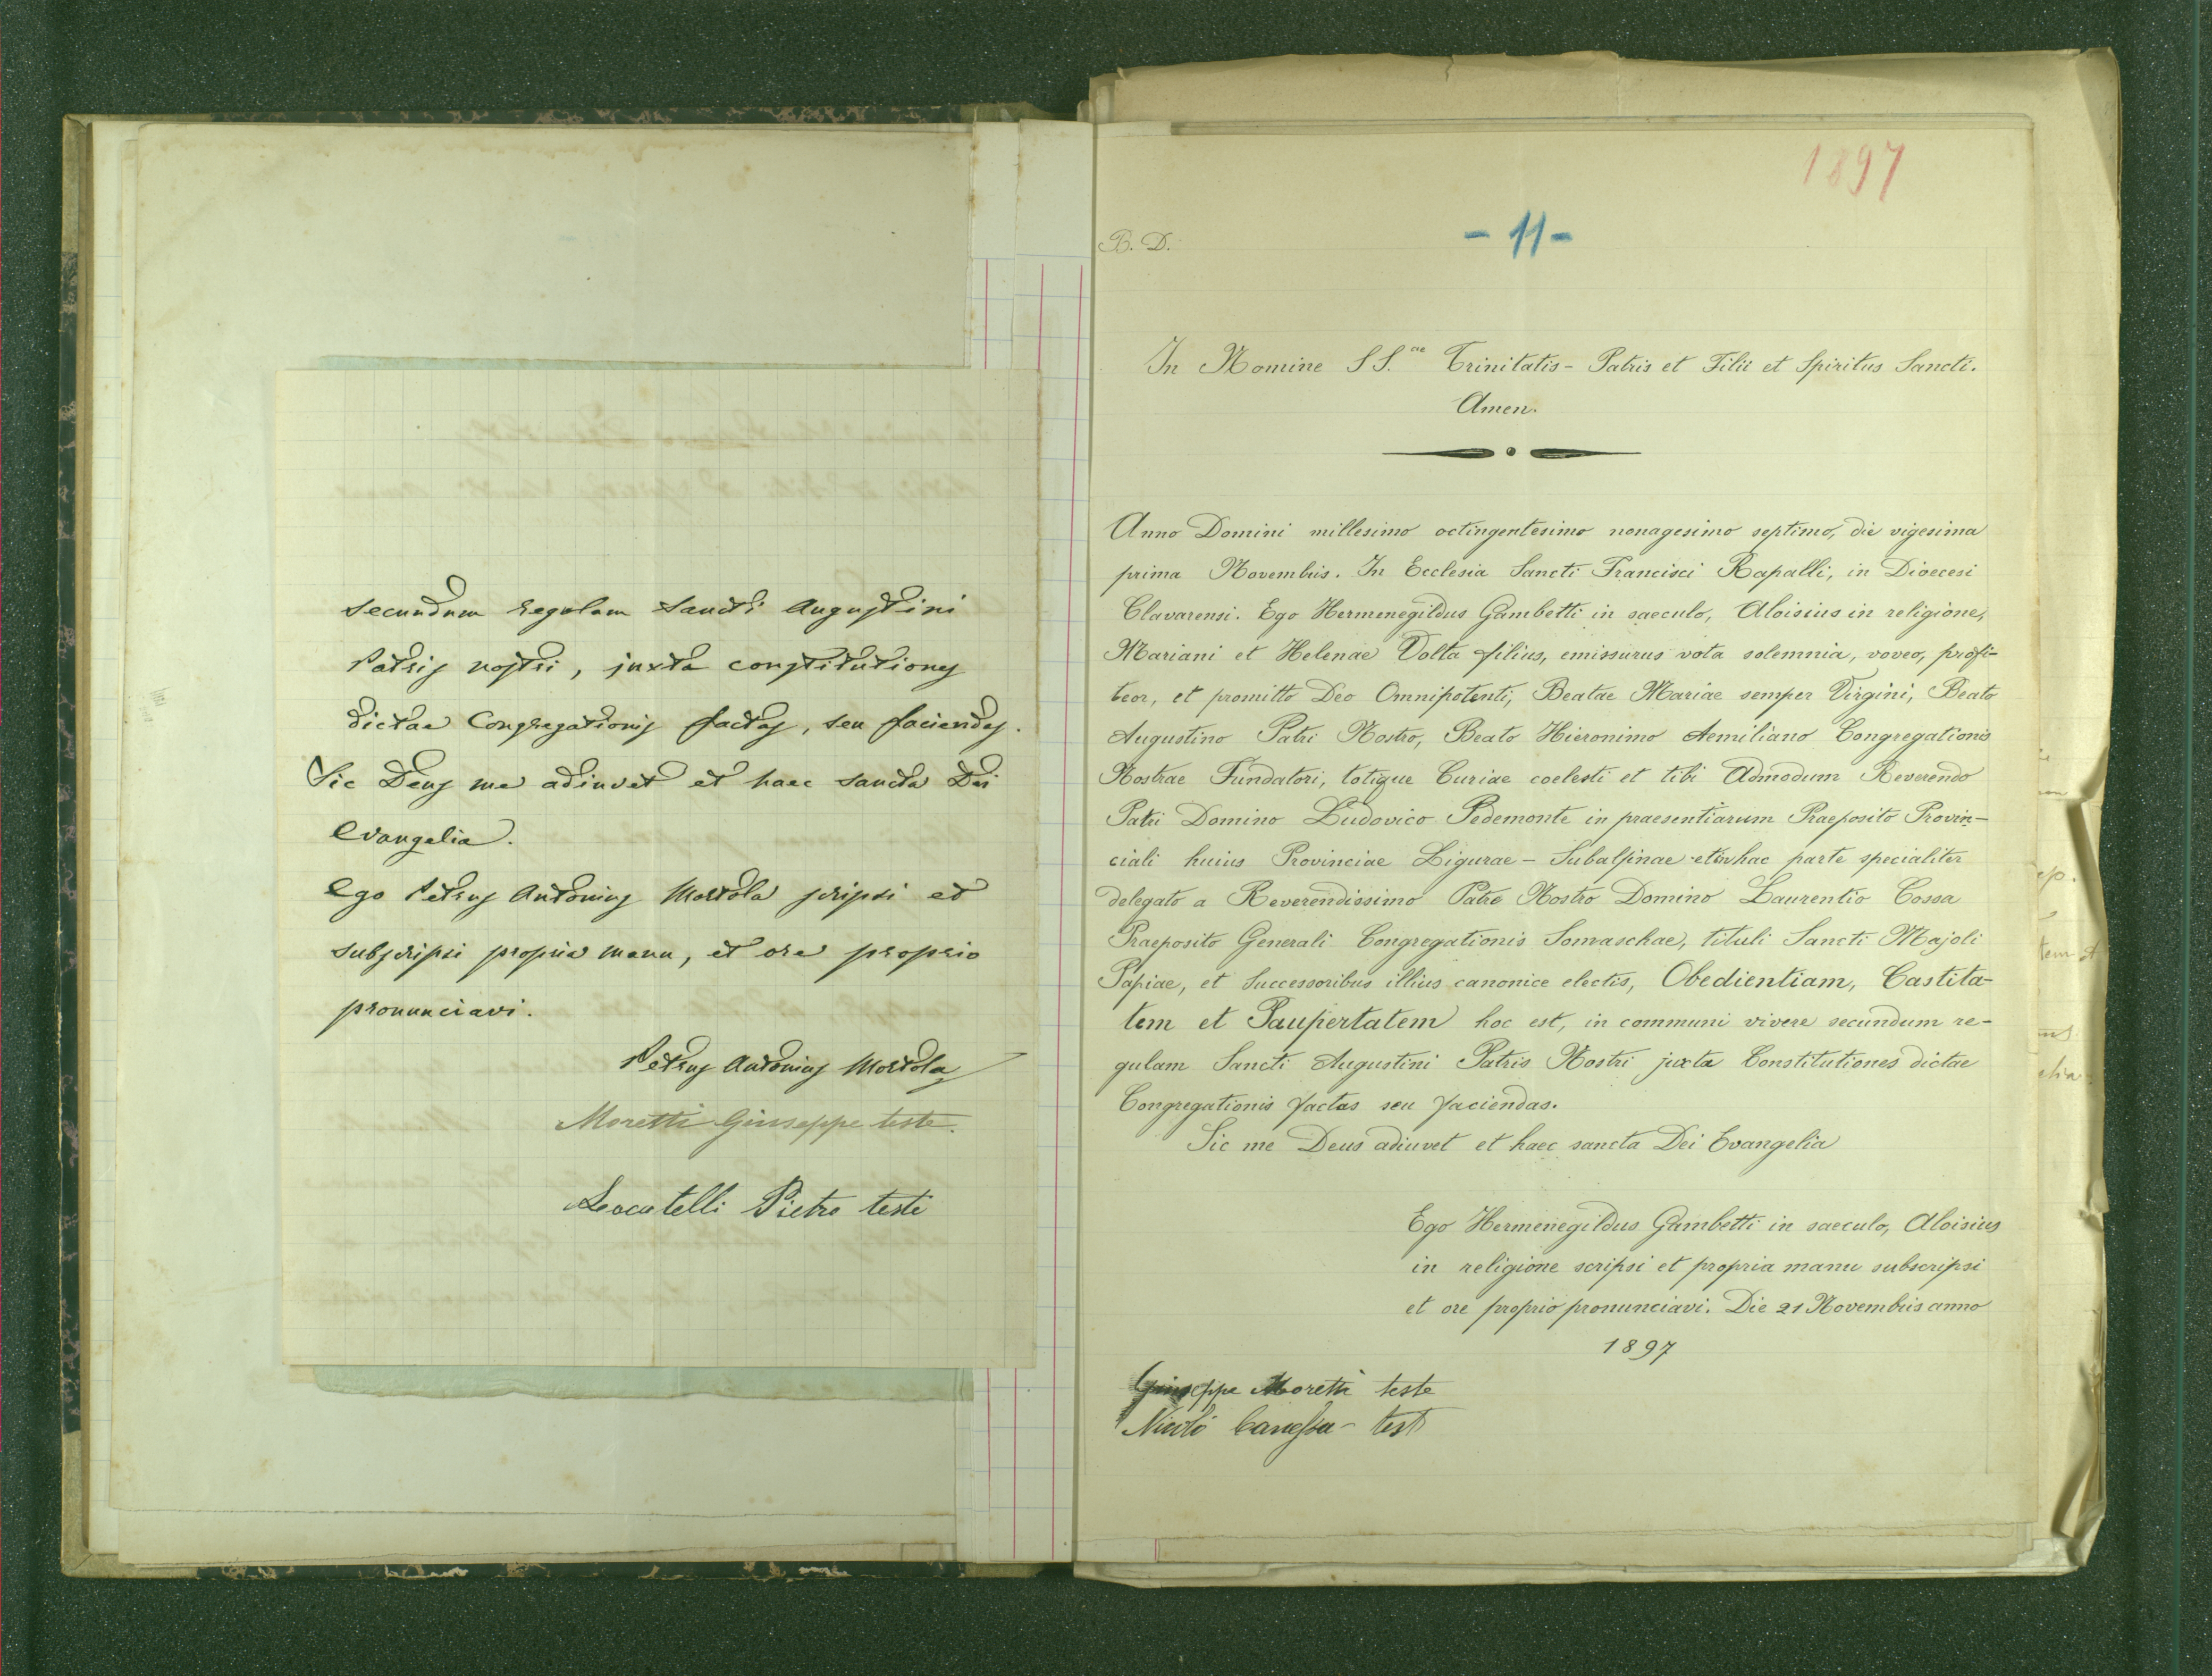 secundum regulam Sancti Augustini
Patris nostri, juxta constitutiones
dictae Congregationis factas, seu faciendas.
Sic Deus me adiuvet et haec sancta Dei
Evangelia.
Ego Petrus Antonius Mortola scripsi et
subscripsi propria manu, et ore proprio
pronunciavi.
Petrus Antonius Mortola
Moretti Giuseppe teste.
Locatelli Pietro teste
1897
- 11 -
B. D.
In Nomine SS.ae Trinitatis - Patris et Filii et Spiritus Sancti.
Amen.
Anno Domini millesimo octingentesimo nonagesimo septimo, die vigesima
prima Novembris. In Ecclesia Sancti Francisci Rapalli, in Dioecesi
Clavarensi. Ego Hermenegildus Gambetti in saeculo, Aloisius in religione,
Mariani et Helenae Volta filius, emissurus vota solemnia, voveo, profi-
teor, et promitto Deo Omnipotenti, Beatae Mariae semper Virgini, Beato
Augustino Patri Nostro, Beato Hieronimo Aemiliano Congregationis
Nostrae Fundatori, totique Curiae coelesti et tibi Admodum Reverendo
Patri Domino Ludovico Pedemonte in praesentiarum Praeposito Provin-
ciali huius Provinciae Ligurae - Subalpinae et in hac parte specialiter
delegato a Reverendissimo Patre Nostro Domino Laurentio Cossa
Praeposito Generali Congregationis Somaschae, tituli Sancti Majoli
Papiae, et Successoribus illius canonice electis, Obedientiam, Castita-
tem et Paupertatem hoc est, in communi vivere secundum re-
gulam Sancti Augustini Patris Nostri juxta Constitutiones dictae
Congregationis factas seu faciendas.
Sic me Deus adiuvet et haec sancta Dei Evangelia
Ego Hermenegildus Gambetti in saeculo, Aloisius
in religione scripsi et propria manu subscripsi
et ore proprio pronunciavi. Die 21 Novembris anno
1897
Giuseppe Moretti teste
Nicolò Canessa - test